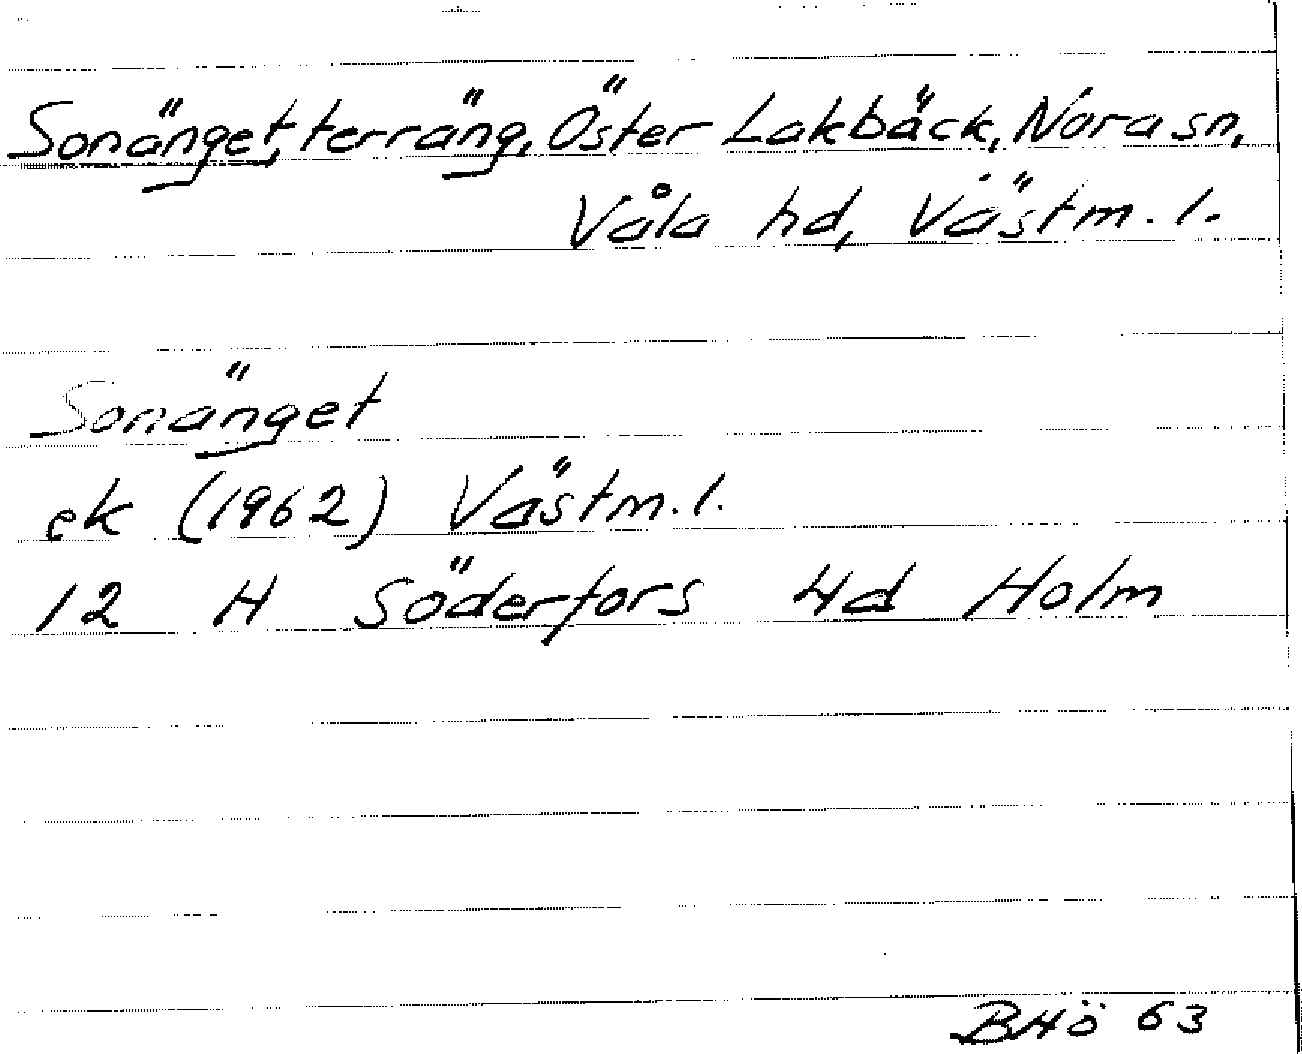 Sonänget, terräng, Öster Lakbäck, Nora sn,
Våla hd, Västm. l.
Sonänget
ek (1962) Västm. l.
12 H Söderfors 4d Holm
BHÖ 63